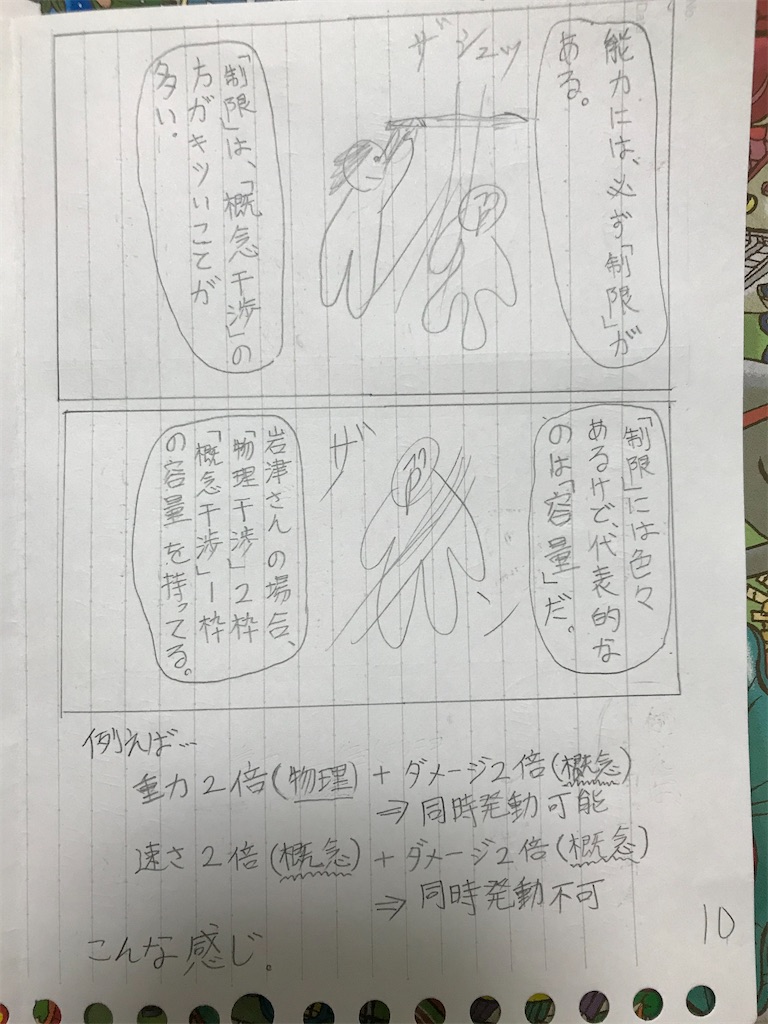 能力には、必ず「制限」が
ある。
ザシュッ
「制限」は、「概念干渉」の
方がキツいことが
多い。
「制限」には色々
あるけど、代表的な
のは「容量」だ。
ザ
ン
岩津さんの場合、
「物理干渉」2枠
「概念干渉」1枠
の容量を持ってる。
例えば…
重力2倍(物理)+ダメージ2倍(概念)
⇒同時発動可能
速さ2倍(概念)+ダメージ2倍(概念)
⇒同時発動不可
こんな感じ。
10